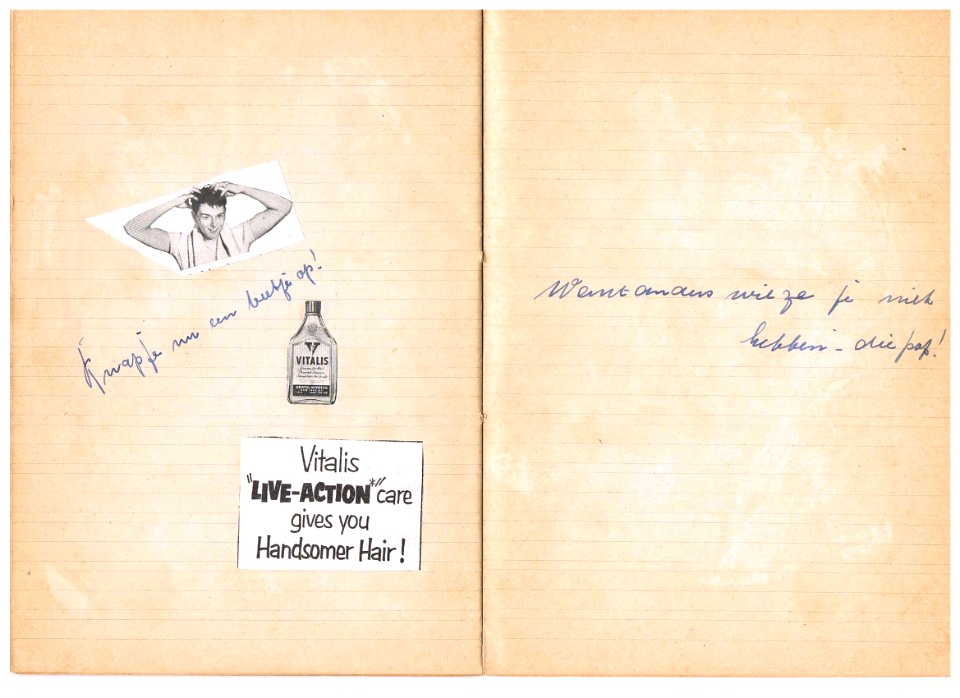 Knap je nu een beetje op!
VITALIS
Vitalis
"LIVE-ACTION*" care
gives you
Handsomer Hair!
Want anders wil ze je niet
hebben - die pop!